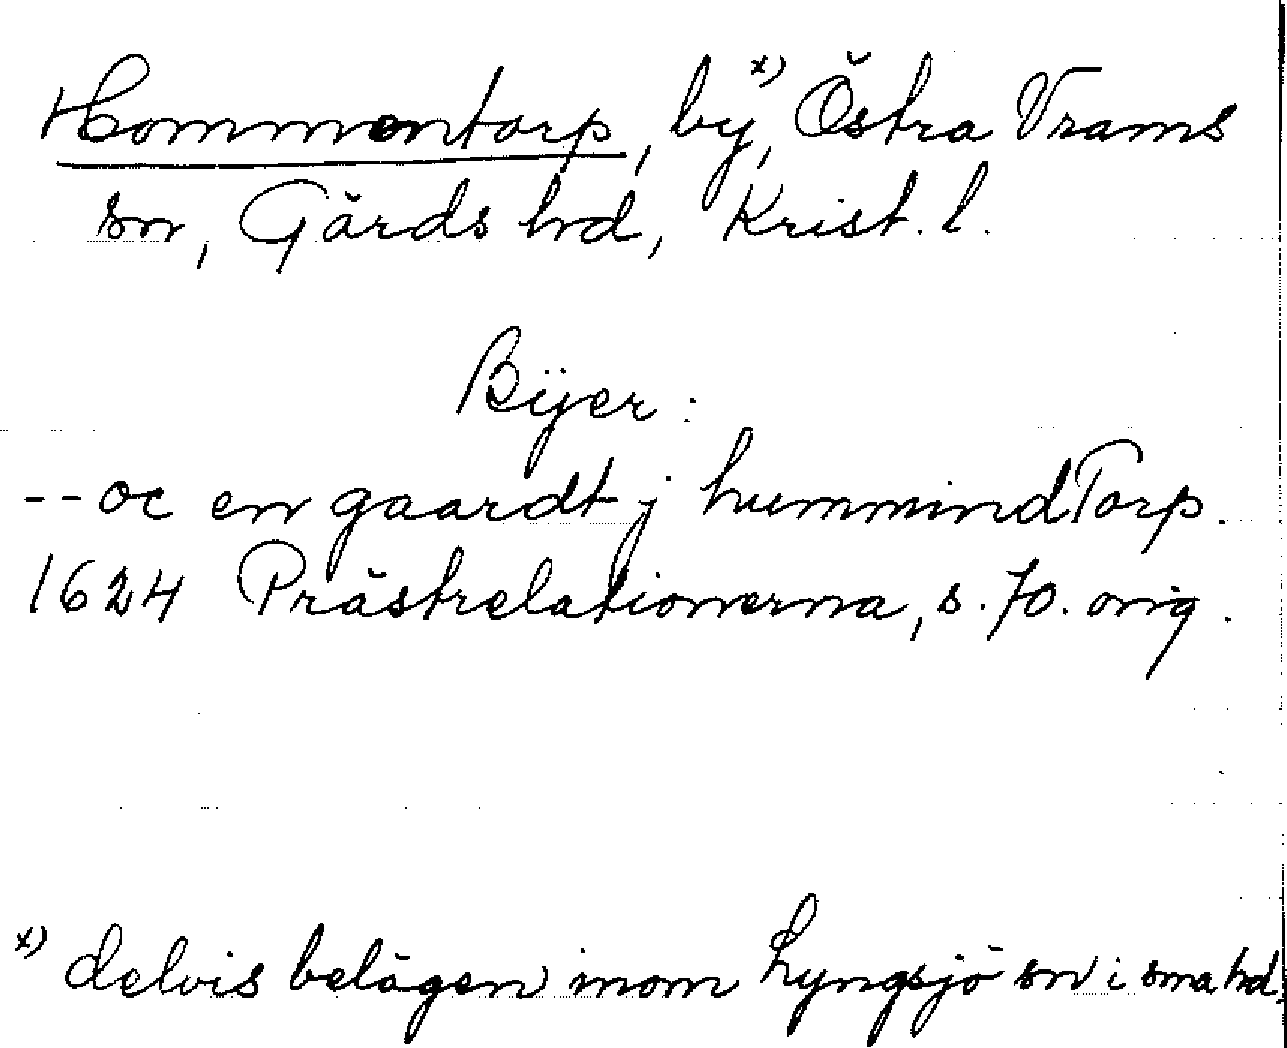 Hommentorp, by,ˣ⁾ Östra Vrams
sn, Gärds hd, Krist. l.
Bÿer:
-- oc en gaardt j hummindTorp.
1624 Prästrelationerna, s. 70. orig.
ˣ⁾ delvis belägen inom Lyngsjö sn i sma hd.